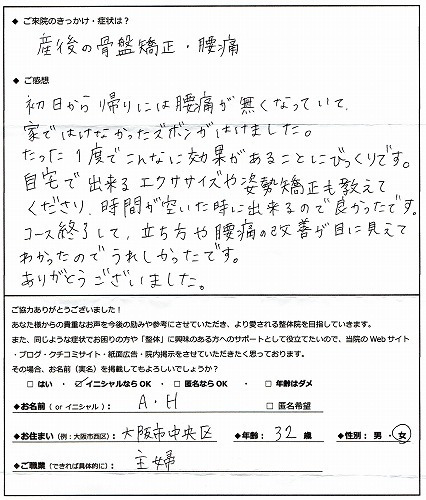 ◆ ご来院のきっかけ・症状は？
産後の骨盤矯正・腰痛
◆ ご感想
初日から帰りには腰痛が無くなっていて、
家ではけなかったズボンがはけました。
たった1度でこんなに効果があることにびっくりです。
自宅で出来るエクササイズや姿勢矯正も教えて
くださり、時間が空いた時に出来るので良かったです。
コース終了して、立ち方や腰痛の改善が目に見えて
わかったのでうれしかったです。
ありがとうございました。
ご協力ありがとうございました！
あなた様からの貴重なお声を今後の励みや参考にさせていただき、より愛される整体院を目指していきます。
また、同じような症状でお困りの方や「整体」に興味のある方へのサポートとして役立てたいので、当院のWebサイト
・ブログ・クチコミサイト・紙面広告・院内掲示をさせていただきたく思っております。
その場合、お名前（実名）を掲載してもよろしいでしょうか？
□ はい ・ ☑ イニシャルなら OK ・ □ 匿名なら OK ・ □ 年齢はダメ
◆お名前（ or イニシャル）： A・H □ 匿名希望
◆お住まい（例：大阪市西区）：大阪市中央区 ◆年齢： 32 歳 ◆性別： 男・女
◆ご職業（できれば具体的に）： 主婦